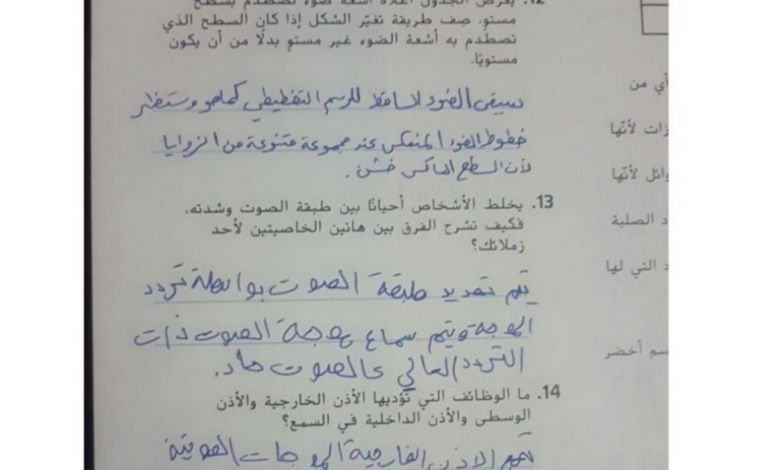 12. يعرض الجدول أعلاه أشعة ضوء تصطدم بسطح
مستوٍ. صِف طريقة تغيّر الشكل إذا كان السطح الذي
تصطدم به أشعة الضوء غير مستوٍ بدلًا من أن يكون
مستويًا.
سيبقى الضوء الساقط للرسم التخطيطي كما هو وستظهر
خطوط الضوء المنعكس عند مجموعة متنوعة من الزوايا
لأن السطح العاكس خشن.
13. يخلط الأشخاص أحيانًا بين طبقة الصوت وشدته.
فكيف تشرح الفرق بين هاتين الخاصيتين لأحد
زملائك؟
يتم تحديد طبقة الصوت بواسطة تردد
الموجة ويتم سماع موجة الصوت ذات
التردد العالي كالصوت حاد.
14. ما الوظائف التي تؤديها الأذن الخارجية والأذن
الوسطى والأذن الداخلية في السمع؟
تجمع الاذن الخارجية الموجات الصوتية
أي من
زات لأنها
وائل لأنها
د الصلبة
د التي لها
سم أخضر